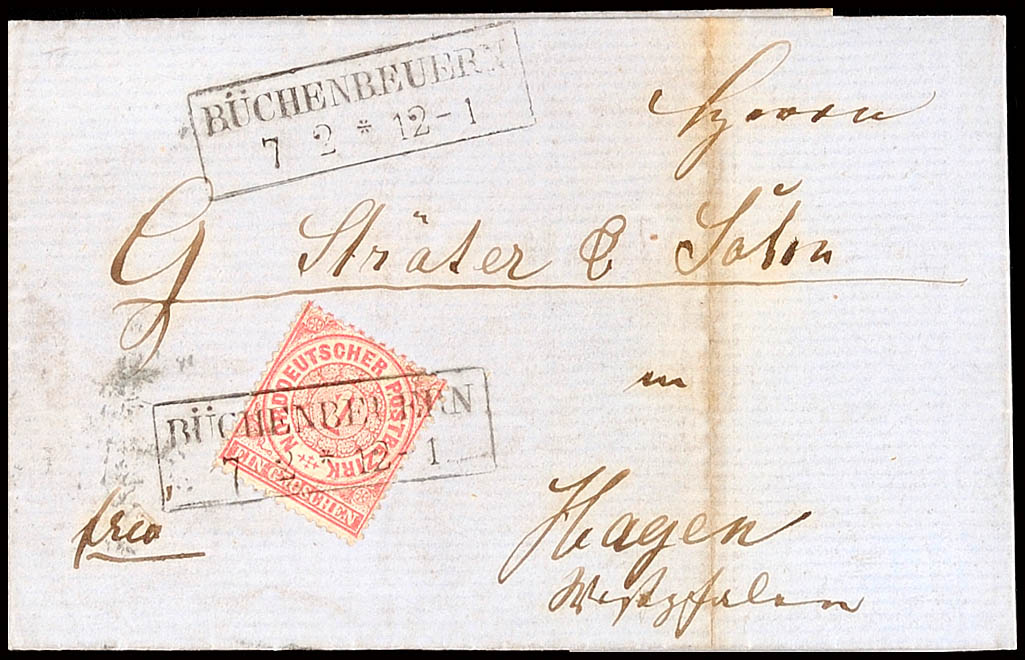 BÜCHENBEUERN
7 2 * 12-1
Herrn
G Sträter & Sohn
NORDDEUTSCHER POSTBEZIRK
1
EIN GROSCHEN
BÜCHENBEUERN
7 2 * 12-1
in
frco
Hagen
Westpfalen